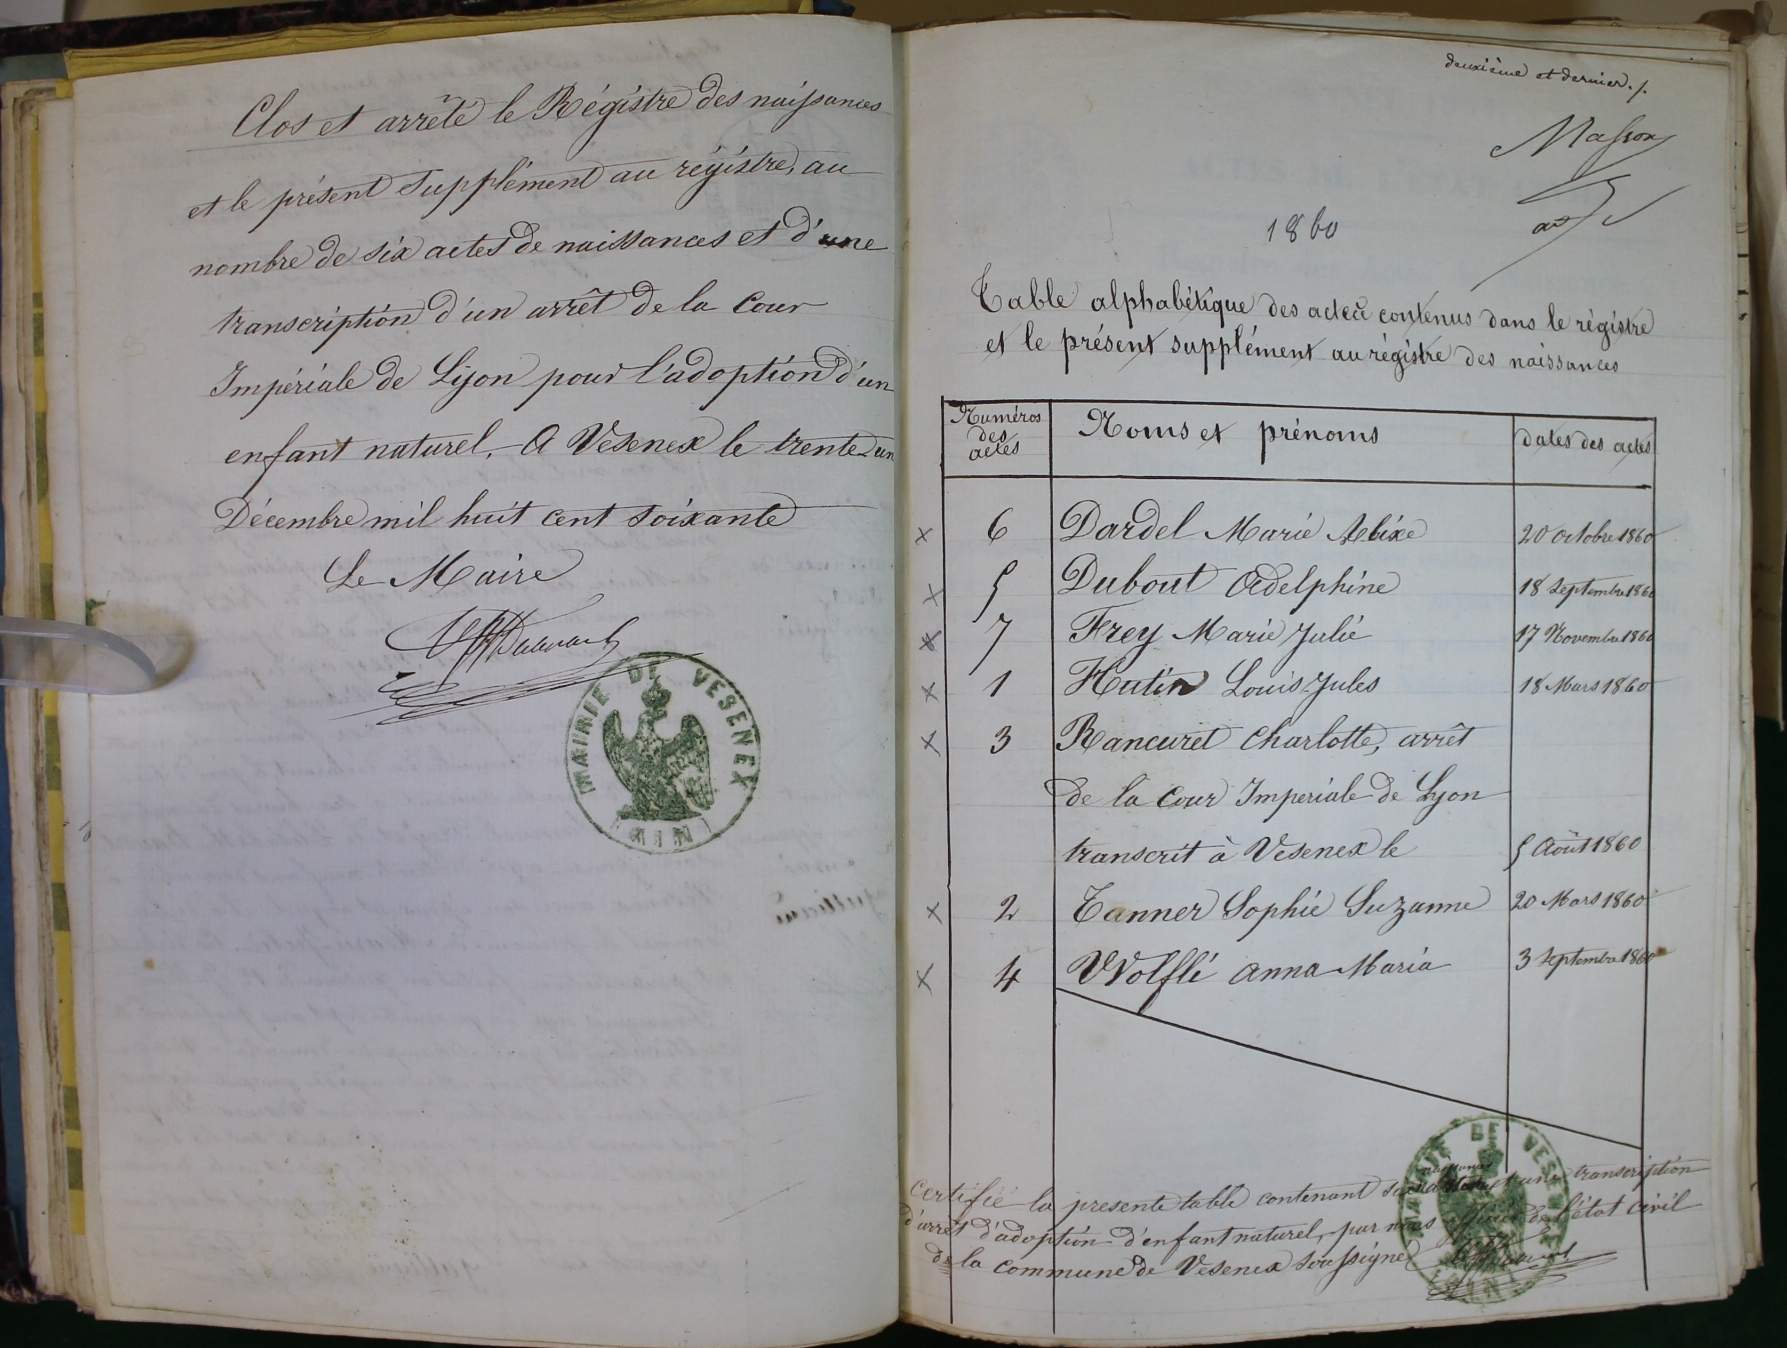 Clos et arrêté le Régistre des naissances
et le présent supplément au régistre, au
nombre de six actes de naissances et d'une
transcription d'un arrêt de la Cour
Impériale de Lyon pour l'adoption d'un
enfant naturel, A Vesenex le trente un
Décembre mil huit cent soixante
Le Maire
MAIRIE DE VESENEX
(AIN)
deuxième et dernier./.
Masson
1860
Table alphabétique des actes contenus dans le régistre
et le présent supplément au régistre des naissances
Numéros des actes Noms et prénoms dates des actes
6 Dardel Marie 20 octobre 1860
5 Dubout Adelphine 18 Septembre 1860
7 Frey Marie Julie 17 Novembre 1860
1 Hutin Louis Jules 18 Mars 1860
3 Rancuret Charlotte, arrêt
de la Cour Imperiale de Lyon
transcrit à Vesenex le 5 Août 1860
2 Tanner Sophie Suzanne 20 Mars 1860
4 Wolflé Anna Maria 3 Septembre 1860
naissances
Certifié la presente table contenant et une transcription
d'arrêt d'adoption d'enfant naturel, par nous officier de l'état civil
de la commune de Vesenex soussigné
MAIRIE DE VESENEX
(AIN)